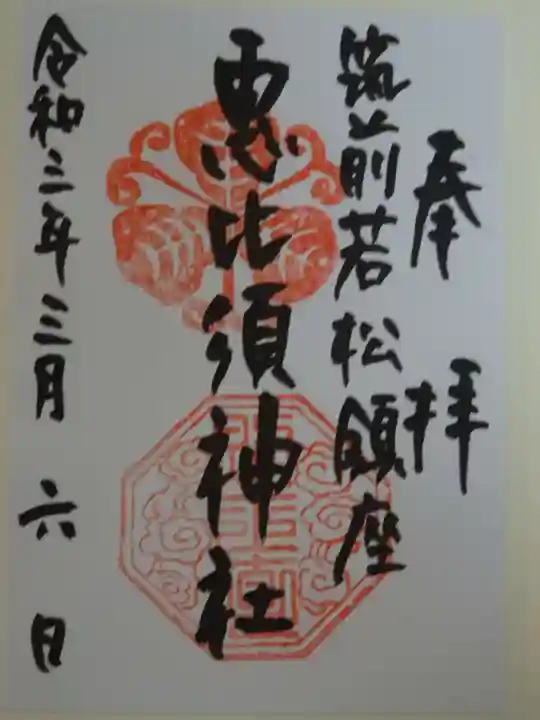 奉拝
筑前若松鎮座
恵比須神社
令和三年三月六日